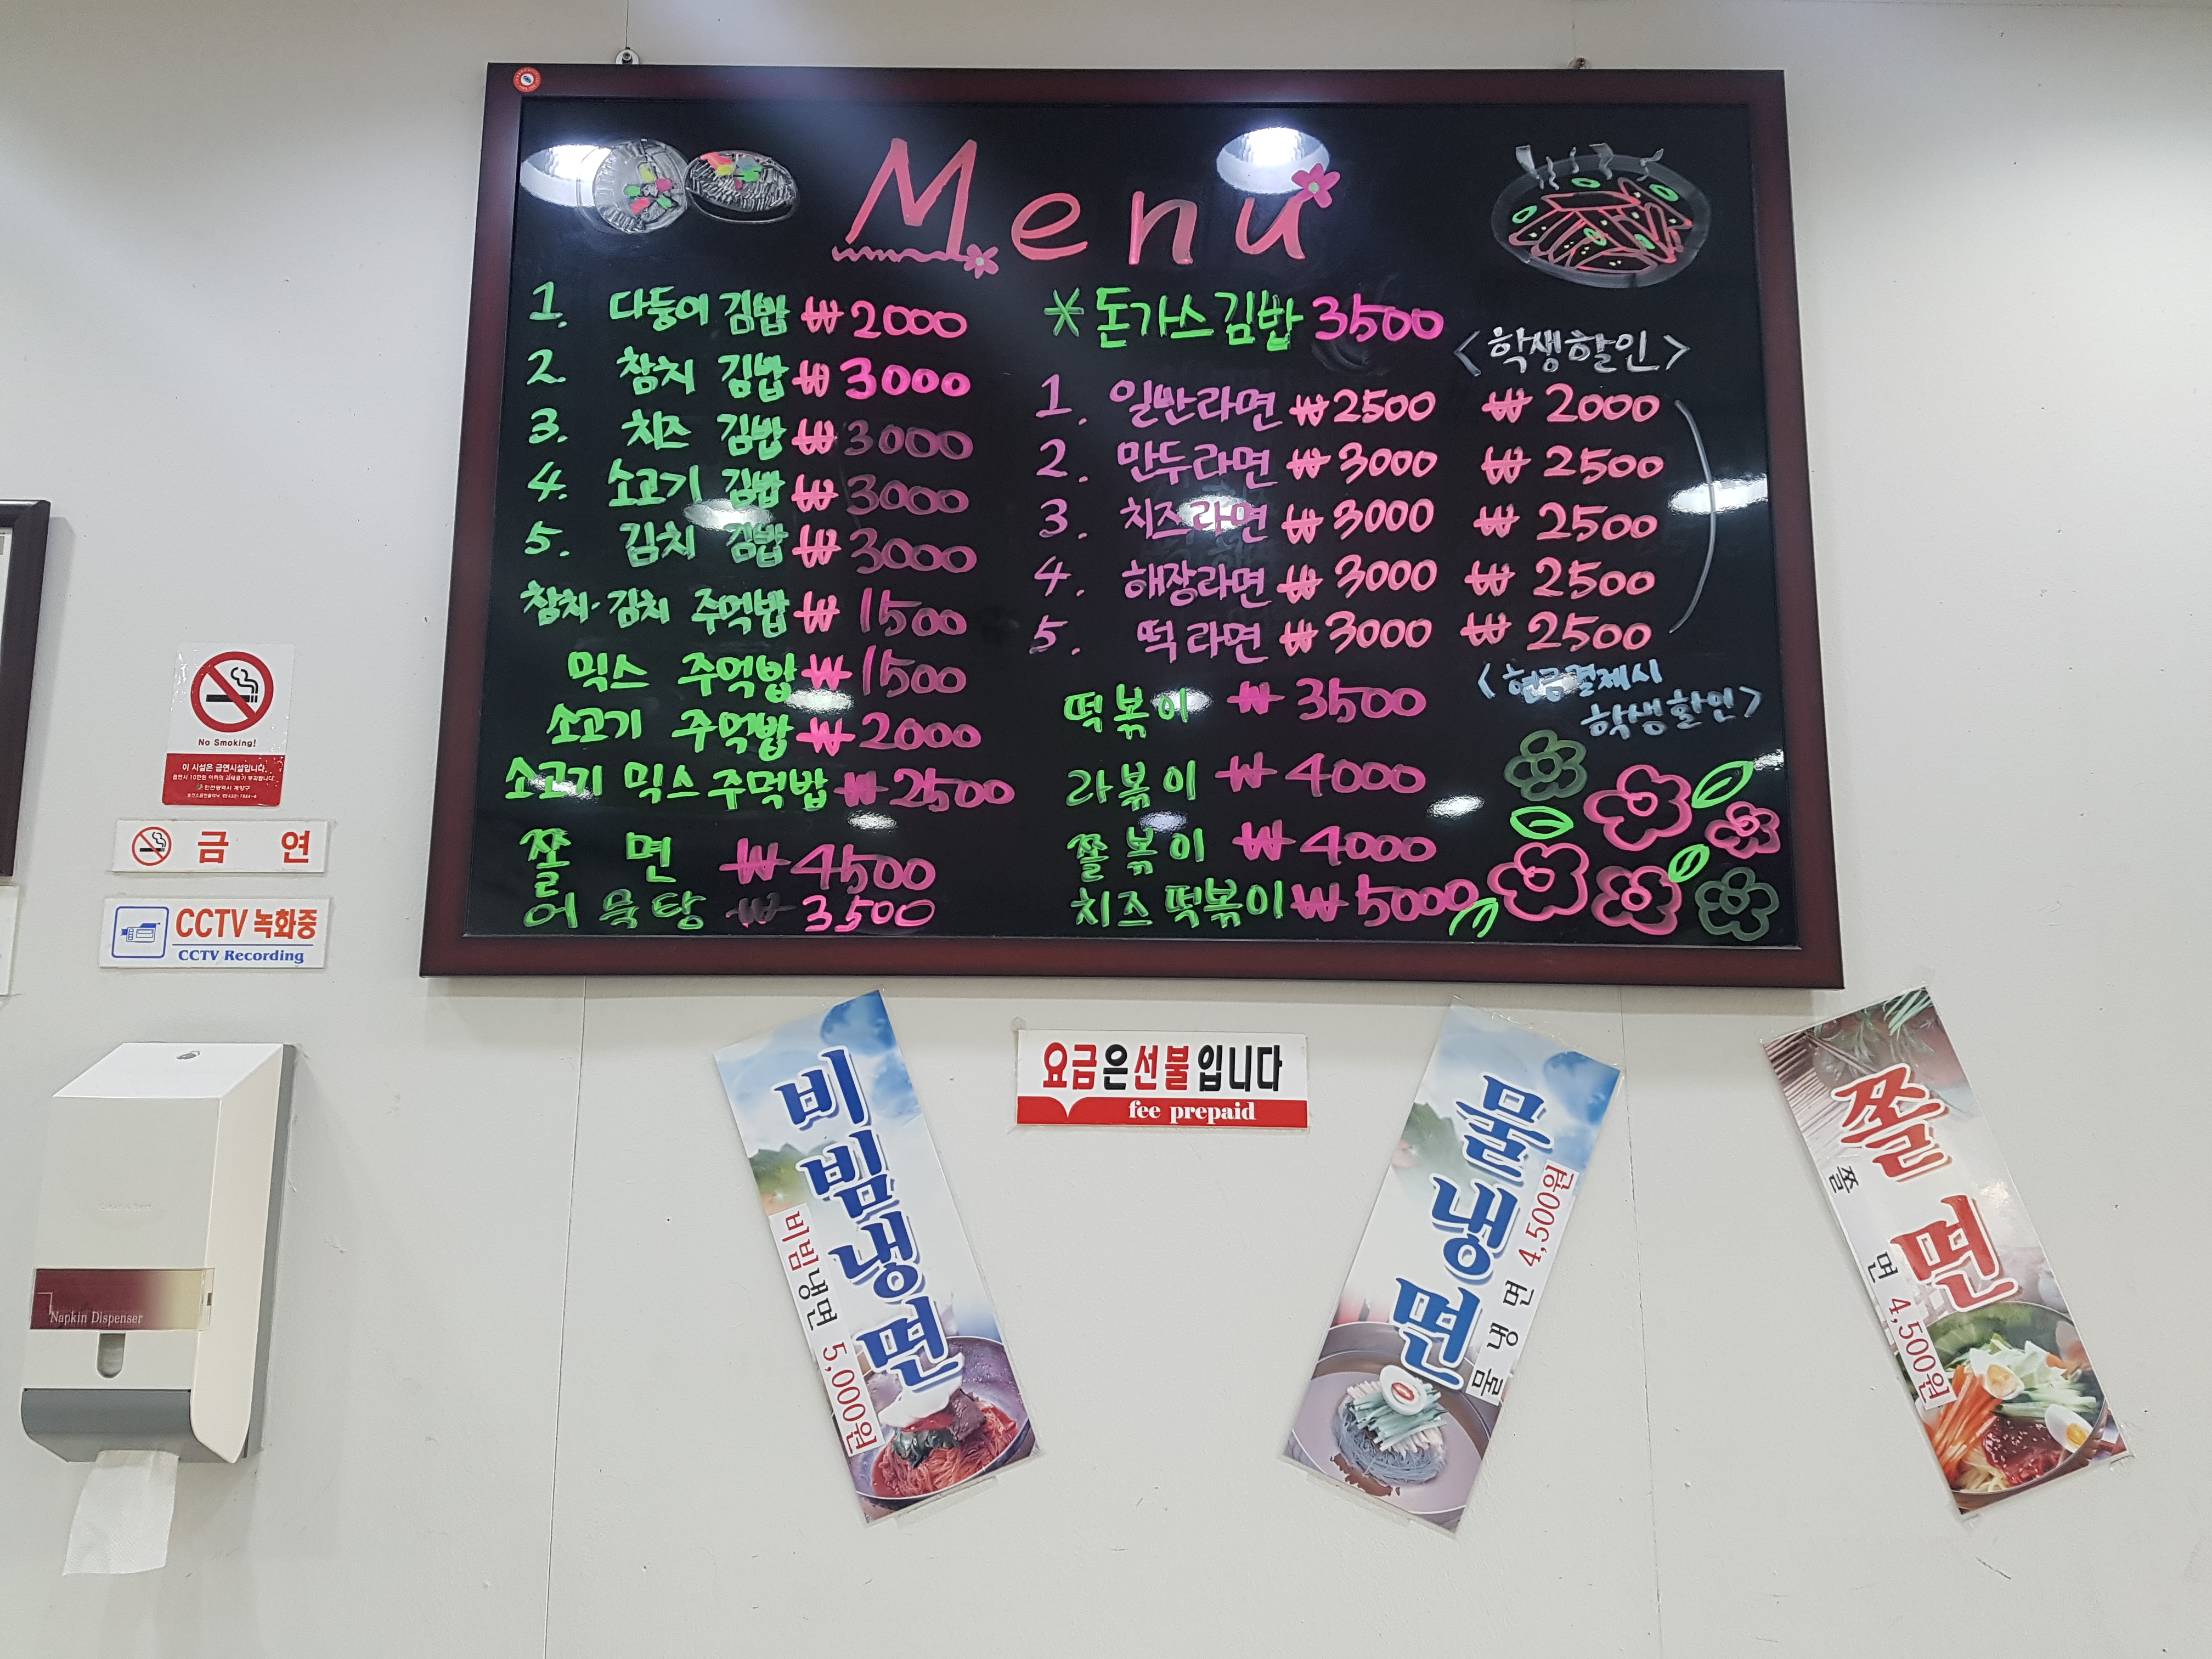 Menu
1. 다둥이 김밥 ₩2000
2. 참치 김밥 ₩3000
3. 치즈 김밥 ₩3000
4. 소고기 김밥 ₩3000
5. 김치 김밥 ₩3000
참치·김치 주먹밥 ₩1500
믹스 주먹밥 ₩1500
소고기 주먹밥 ₩2000
소고기 믹스 주먹밥 ₩2500
쫄 면 ₩4500
어묵탕 ₩3500
*돈가스김밥 3500
<학생할인>
1. 일반라면 ₩2500 ₩2000
2. 만두라면 ₩3000 ₩2500
3. 치즈라면 ₩3000 ₩2500
4. 해장라면 ₩3000 ₩2500
5. 떡라면 ₩3000 ₩2500
<현금결제시
학생할인>
떡볶이 ₩3500
라볶이 ₩4000
쫄볶이 ₩4000
치즈떡볶이 ₩5000
No Smoking!
이 시설은 금연시설입니다.
금 연
CCTV 녹화중
CCTV Recording
Napkin Dispenser
요금은선불입니다
fee prepaid
비빔냉면
비빔냉면 5,000원
물냉면
물냉면 4,500원
쫄면
쫄면 4,500원